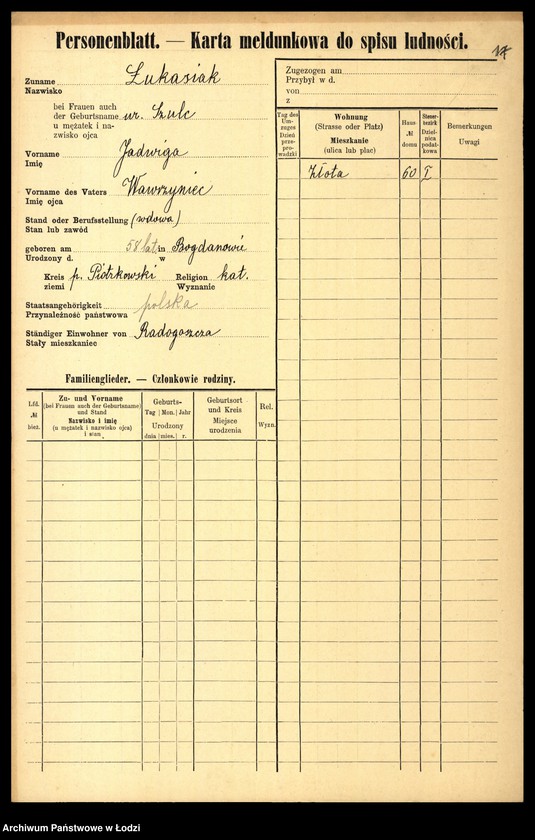 Personenblatt. — Karta meldunkowa do spisu ludności.
17
Zuname Łukasiak
Nazwisko
bei Frauen auch
der Geburtsname ur. Szulc
u mężatek i na-
zwisko ojca
Vorname Jadwiga
Imię
Vorname des Vaters Wawrzyniec
Imię ojca
Stand oder Berufsstellung (wdowa)
Stan lub zawód
geboren am 58 lat in Bogdanowie
Urodzony d. w
Kreis p. Piotrkowski Religion kat.
ziemi Wyznanie
Staatsangehörigkeit polska
Przynależność państwowa
Ständiger Einwohner von Radogoszcza
Stały mieszkaniec
Familienglieder. — Członkowie rodziny.
Lfd. № bież.
Zu- und Vorname
(bei Frauen auch der Geburtsname)
und Stand
Nazwisko i imię
(u mężatek i nazwisko ojca)
i stan
Geburts-
Tag Mon. Jahr
Urodzony
dnia mies. r.
Geburtsort
und Kreis
Miejsce
urodzenia
Rel.
Wyzn.
Zugezogen am
Przybył w d.
von
z
Tag des
Um-
zuges
Dzień
prze-
pro-
wadzki
Wohnung
(Strasse oder Platz)
Mieszkanie
(ulica lub plac)
Haus-
№
domu
Steuer-
bezirk
Dziel-
nica
podat-
kowa
Bemerkungen
Uwagi
Złota 60 I
Archiwum Państwowe w Łodzi